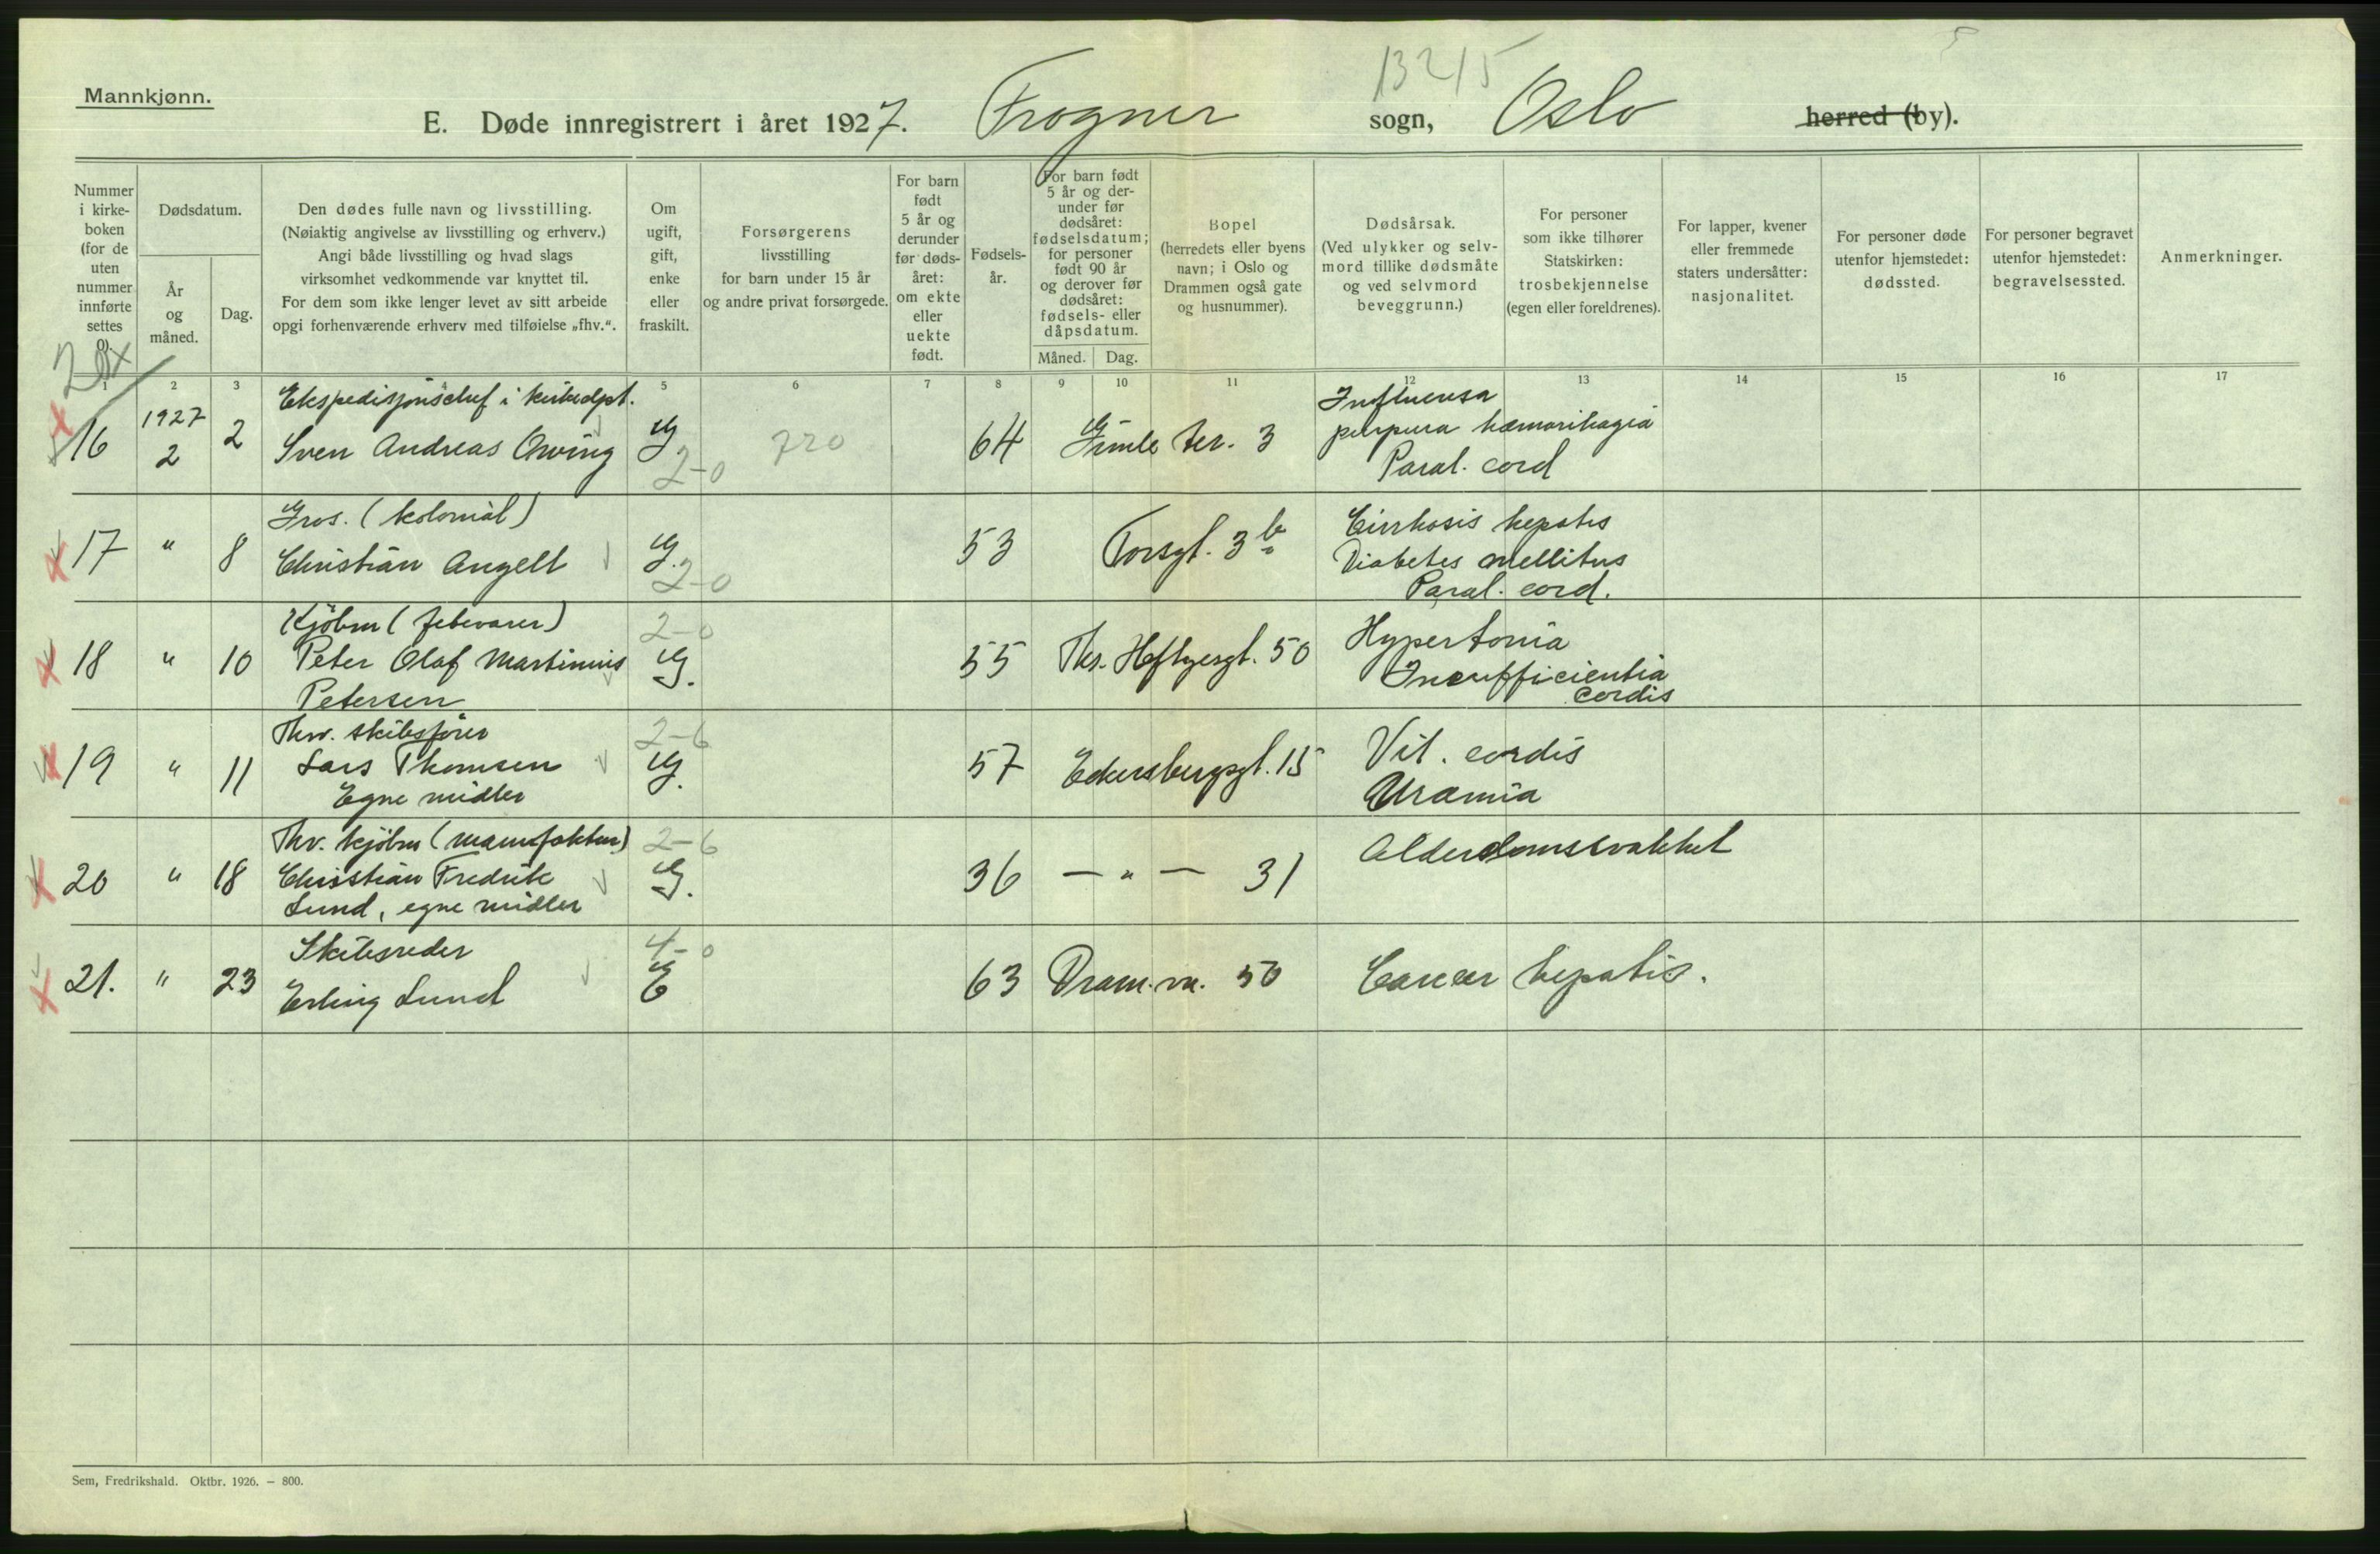 Mannkjønn.
13215
E. Døde innregistrert i året 1927. Frogner sogn, Oslo herred (by).
Nummer i kirke-boken (for de uten nummer innførte settes 0).
Dødsdatum.
År og måned.
Dag.
Den dødes fulle navn og livsstilling.
(Nøiaktig angivelse av livsstilling og erhverv.)
Angi både livsstilling og hvad slags
virksomhet vedkommende var knyttet til.
For dem som ikke lenger levet av sitt arbeide
opgi forhenværende erhverv med tilføielse „fhv.“.
Om ugift, gift, enke eller fraskilt.
Forsørgerens
livsstilling
for barn under 15 år
og andre privat forsørgede.
For barn født 5 år og derunder før døds-året: om ekte eller uekte født.
Fødsels-år.
For barn født 5 år og der-under før dødsåret: fødselsdatum; for personer født 90 år og derover før dødsåret: fødsels- eller dåpsdatum.
Måned. Dag.
Bopel
(herredets eller byens
navn; i Oslo og
Drammen også gate
og husnummer).
Dødsårsak.
(Ved ulykker og selv-
mord tillike dødsmåte
og ved selvmord
beveggrunn.)
For personer
som ikke tilhører
Statskirken:
trosbekjennelse
(egen eller foreldrenes).
For lapper, kvener
eller fremmede
staters undersåtter:
nasjonalitet.
For personer døde
utenfor hjemstedet:
dødssted.
For personer begravet
utenfor hjemstedet:
begravelsessted.
Anmerkninger.
1 2 3 4 5 6 7 8 9 10 11 12 13 14 15 16 17
Ekspedisjonschef i kirkedpt. Influensa
16 1927 2 2 Sven Andreas Svving G 2-0 720 64 Gimle ter. 3 purpura hæmorrhagia
Paral. cord
Gros. (kolonial) Cirrhosis hepatis
17 " 8 Christian Angell G. 2-0 53 Torsgt. 3 b Diabetes mellitus
Paral. cord.
Kjöbm (fetevarer) 2-0 Hypertonia
18 " 10 Peter Olaf Martinius G. 55 Ths. Heftyesgt. 50 Insufficientia
Petersen cordis
Fhv. skibsfører 2-6 Vit. cordis
19 " 11 Lars Thomsen G. 57 Eckersbergsgt. 15
Egne midler Uræmia
Fhv. kjöbm (manufaktur) 2-6 Alderdomssvakhet
20 " 18 Christian Fredrik G. 36 — " — 31
Lund, egne midler
Skibsreder 4-0
21. " 23 Erling Lund E 63 Dram.vn. 50 Cancer hepatis.
Sem, Fredrikshald. Oktbr. 1926. – 800.